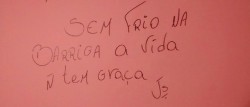 SEM FRIO NA
BARRIGA a vida
ñ tem graça